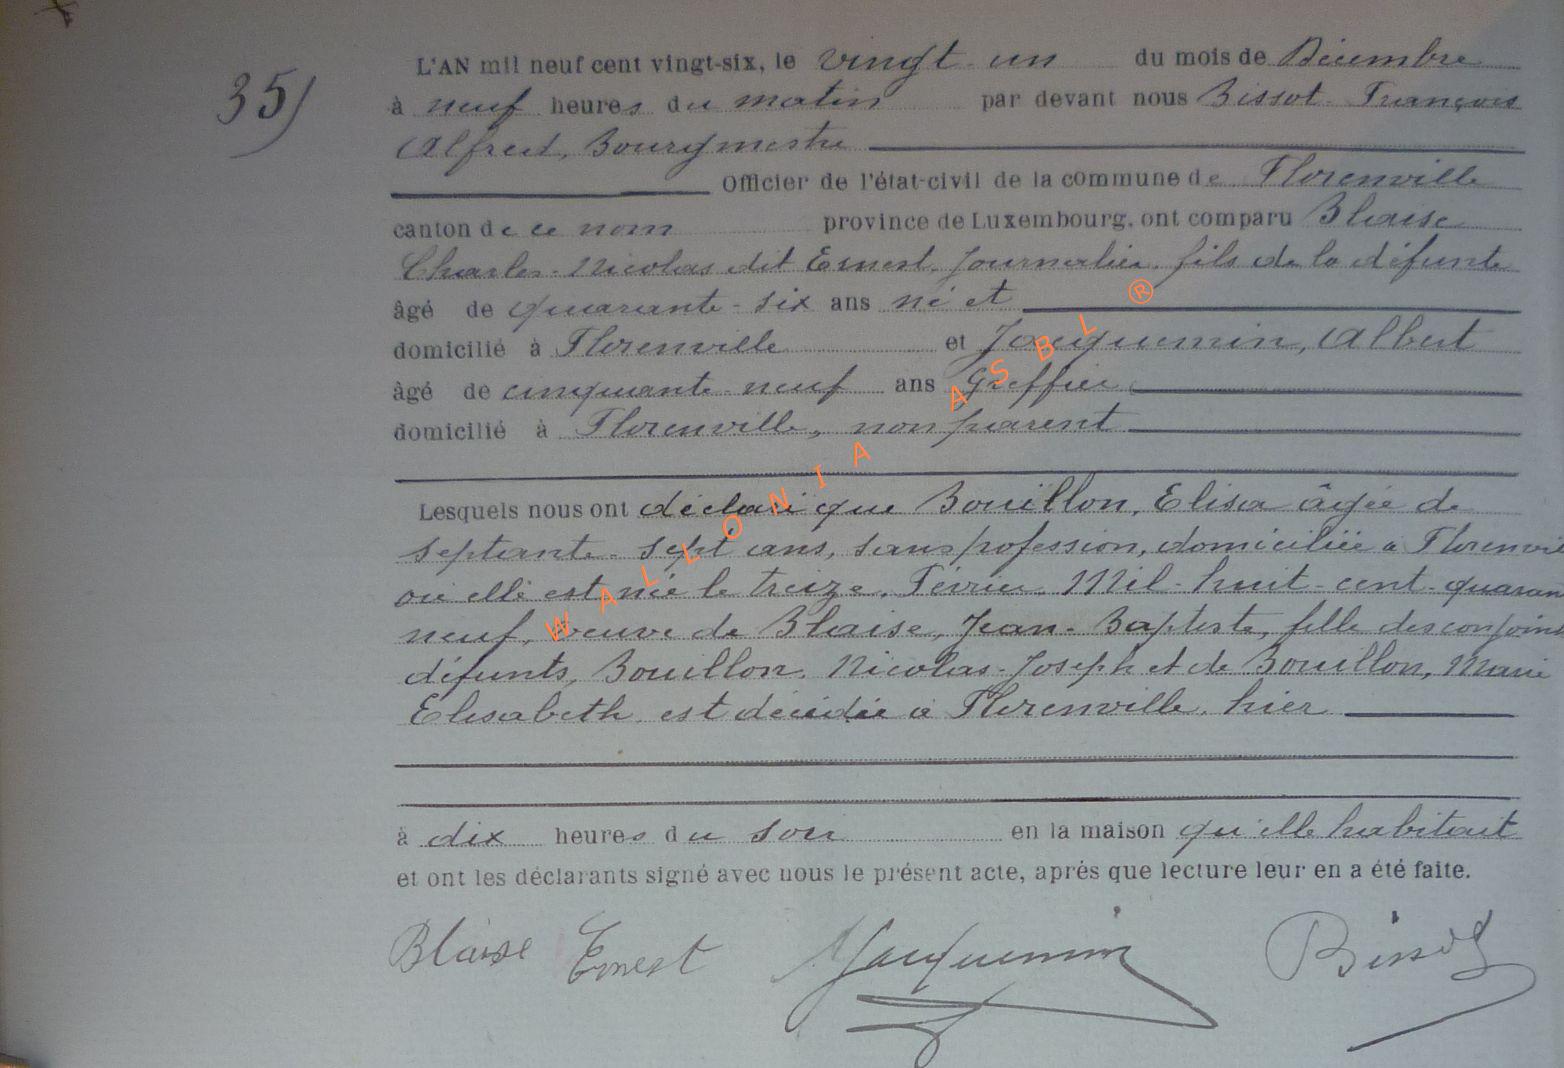 35)
L'AN mil neuf cent vingt-six, le vingt-un du mois de Décembre
à neuf heures du matin par devant nous Bissot François
Alfred, Bourgmestre
Officier de l'état-civil de la commune de Florenville
canton de ce nom province de Luxembourg, ont comparu Blaise
Charles-Nicolas dit Ernest, Journalier, fils de la défunte
âgé de quarante-six ans né et
domicilié à Florenville et Jacquemin, Albert
âgé de cinquante-neuf ans Greffier
domicilié à Florenville, non parent
Lesquels nous ont déclaré que Bouillon, Elisa âgée de
septante-sept ans, sans profession, domiciliée à Florenvil
où elle est née le treize Février Mil-huit-cent-quaran
neuf, veuve de Blaise, Jean-Baptiste, fille des conjoint
défunts, Bouillon, Nicolas-Joseph et de Bouillon, Marie
Elisabeth est décédée à Florenville, hier
à dix heures du soir en la maison qu'elle habitait
et ont les déclarants signé avec nous le présent acte, après que lecture leur en a été faite.
Blaise Ernest Jacquemin Bissot
WALLONIA ASBL ®